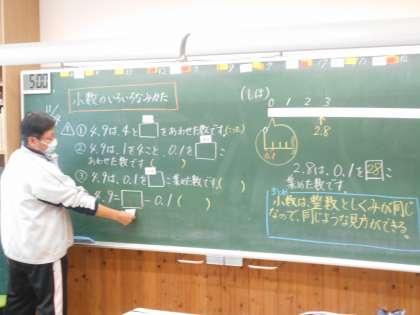 小数のいろいろなみかた
① 4.9は、4と□をあわせた数です。
② 4.9は、1を4こと、0.1を□こ
あわせた数です。(　)
③ 4.9は、0.1を□こ集めた数です。(　)
4.9=□-0.1(　)
(もけ)
0 1 2 3
2.8
0.1
2.8は、0.1を28こ
集めた数です。
まとめ
小数は、整数としくみが同じ
なので、同じような見方ができる。